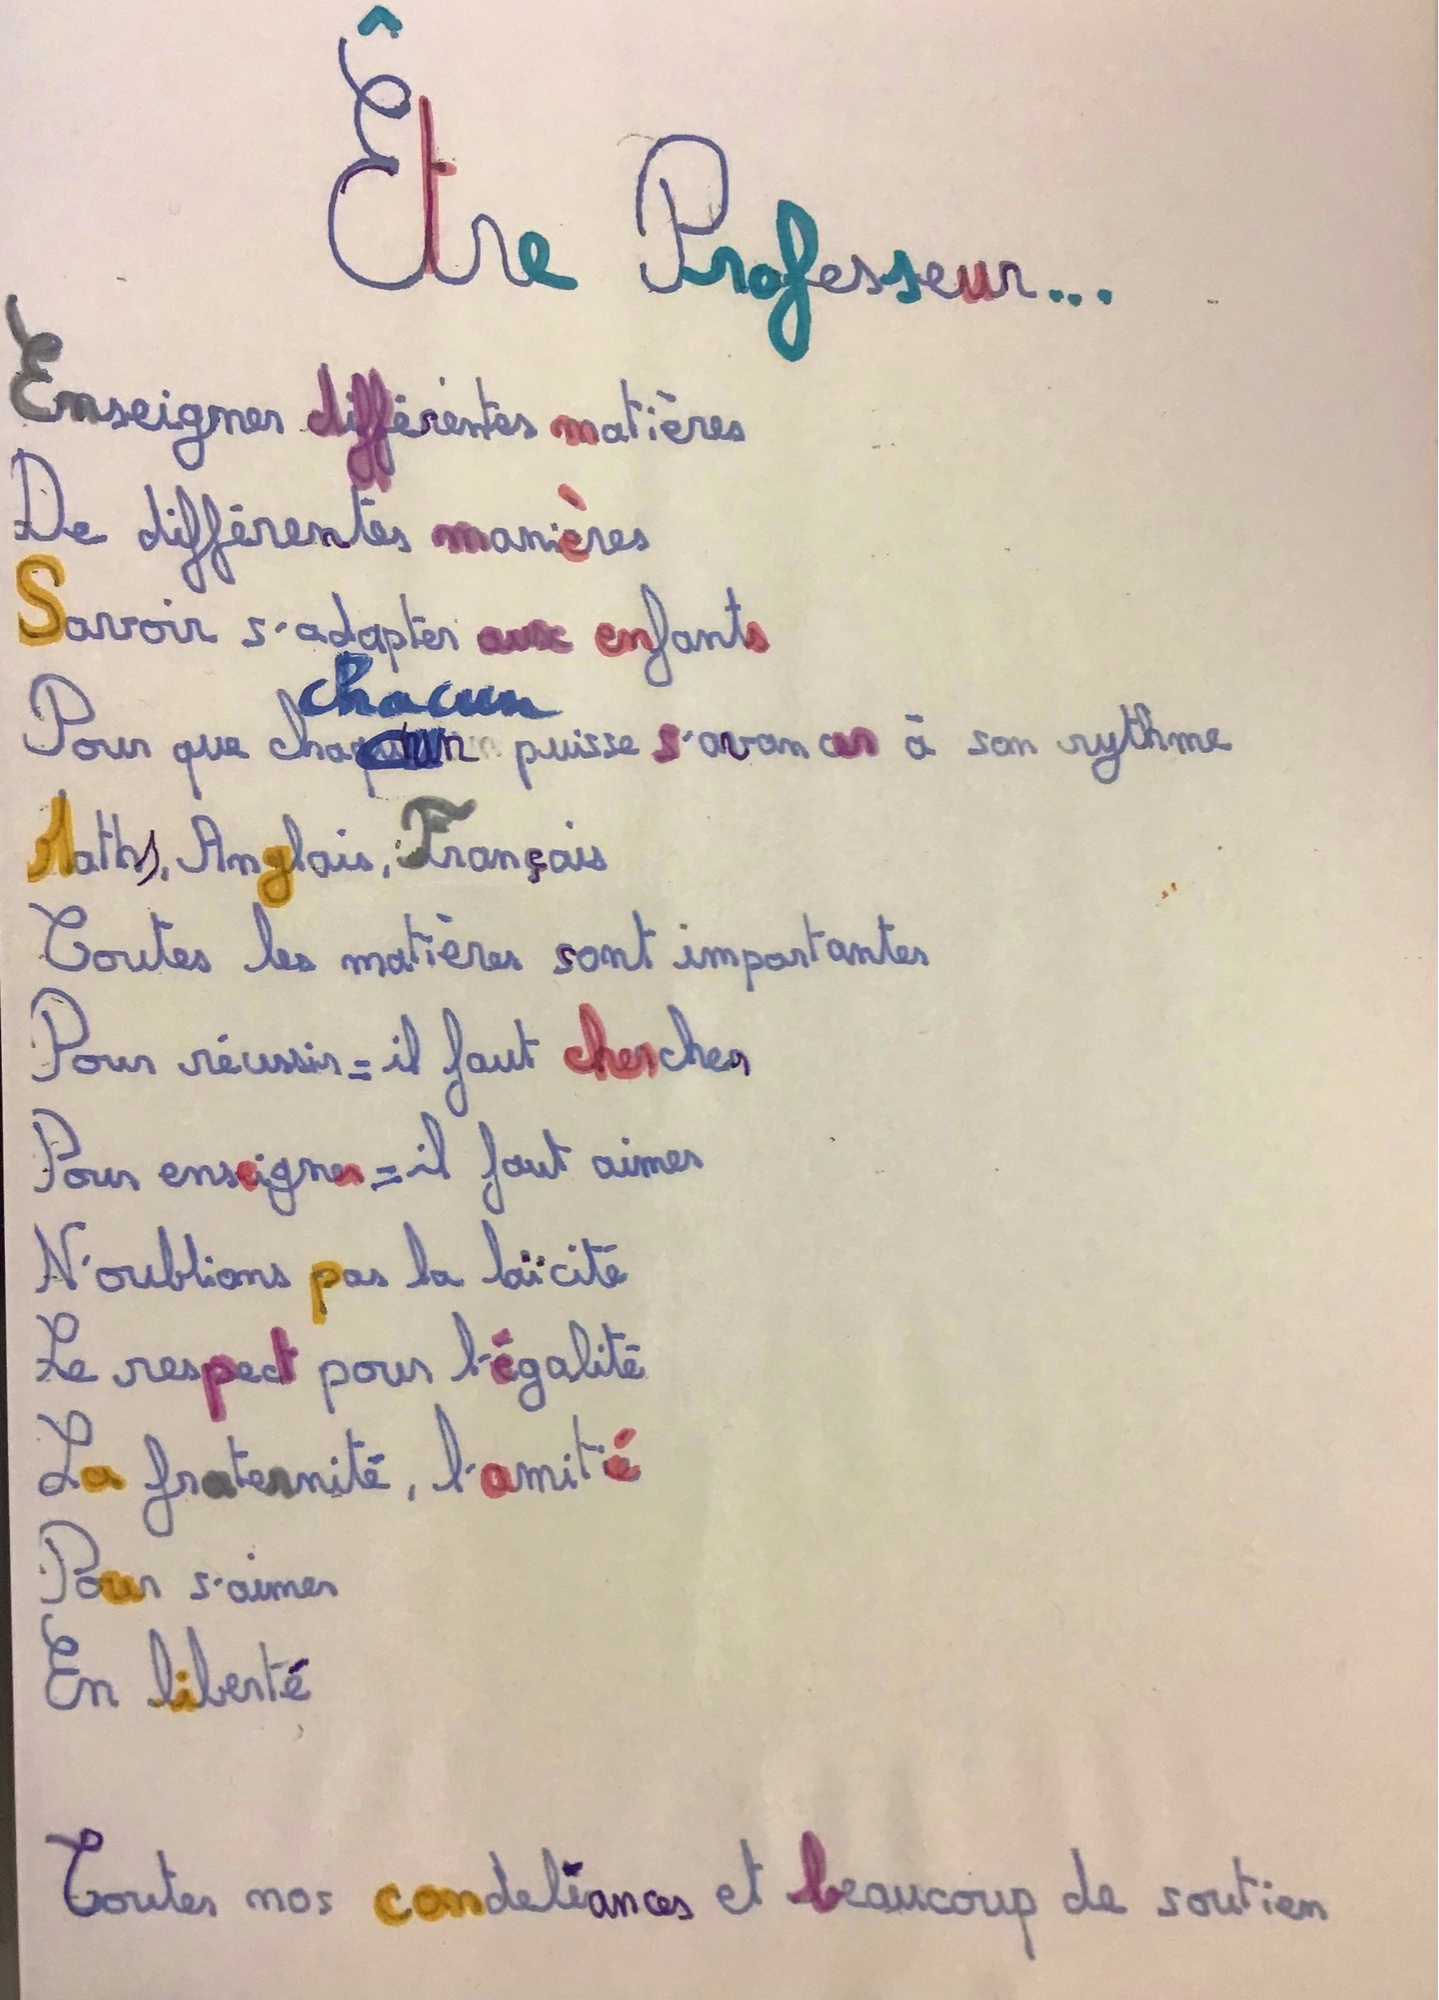 Être Professeur...
Enseigner différentes matières
De différentes manières
Savoir s'adapter aux enfants
chacun
Pour que puisse s'avancer à son rythme
Maths, Anglais, Français
Toutes les matières sont importantes
Pour réussir = il faut chercher
Pour enseigner = il faut aimer
N'oublions pas la laïcité
Le respect pour l'égalité
La fraternité, l'amitié
Pour s'aimer
En liberté
Toutes nos condeléances et beaucoup de soutien